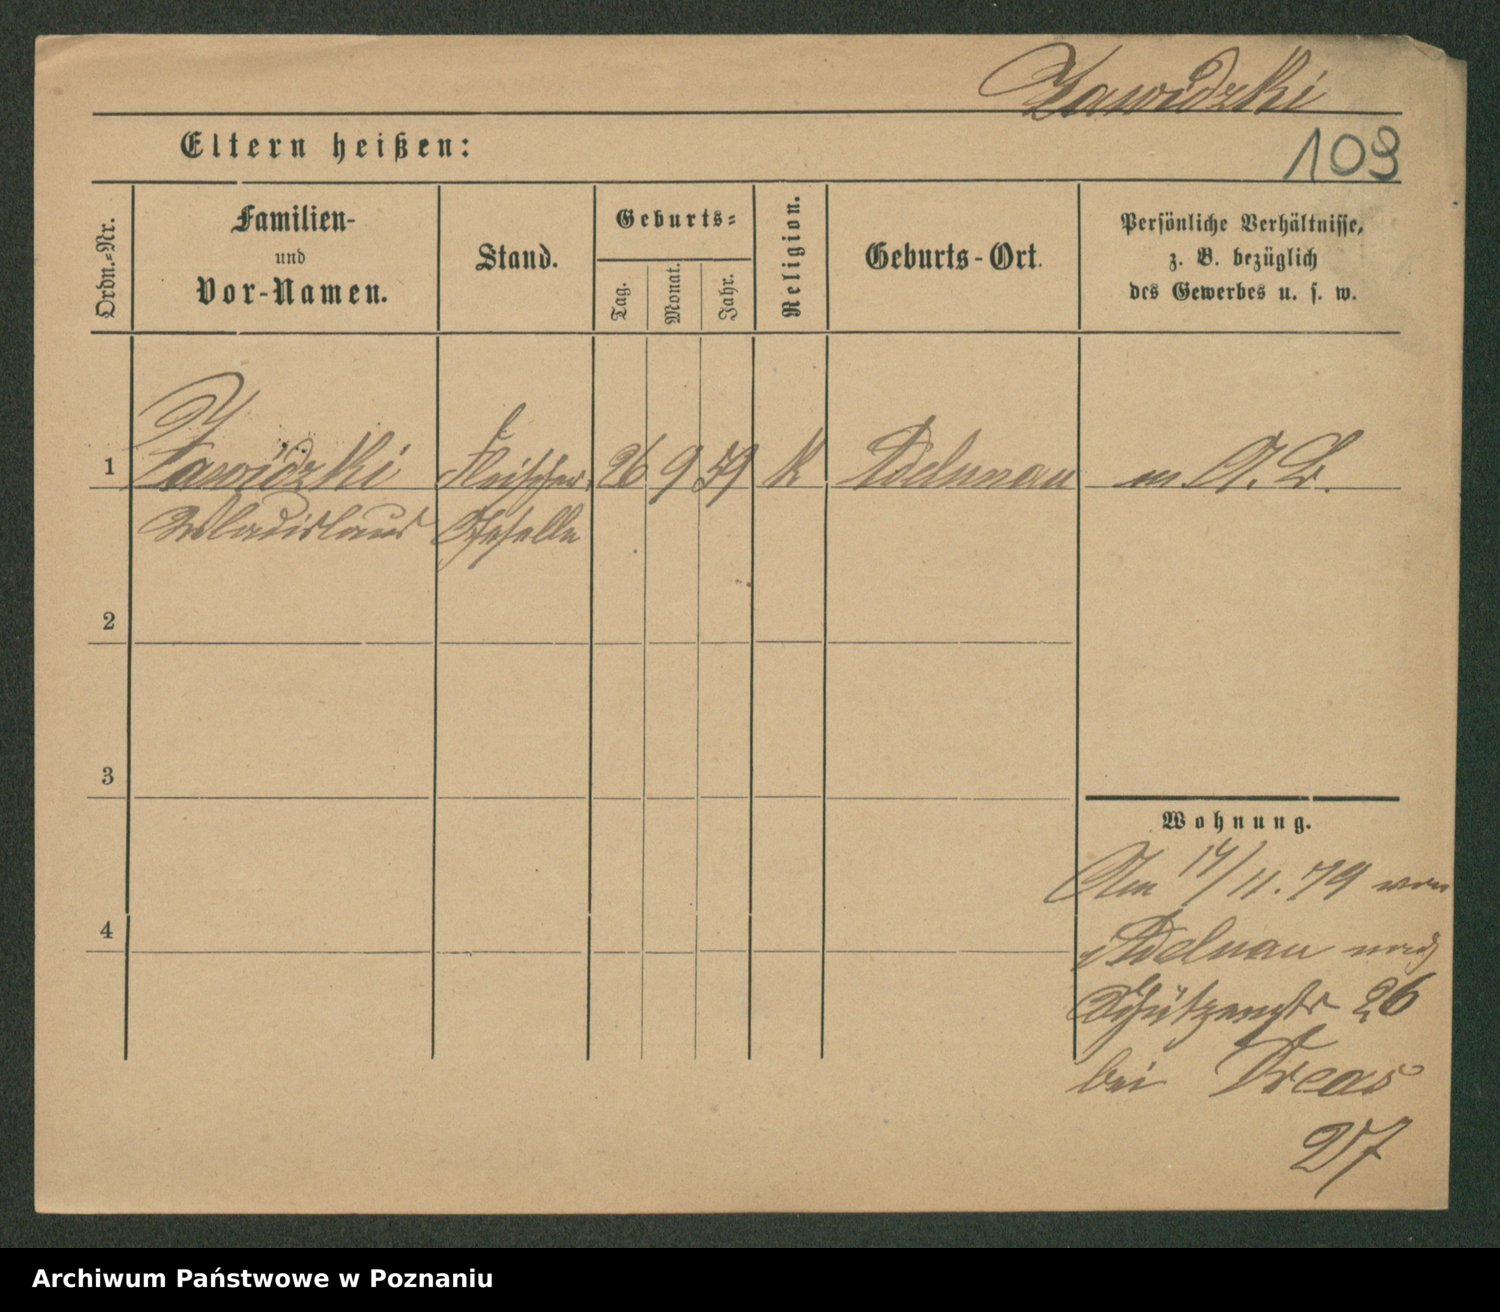 Zawidzki
Eltern heißen:
109
Ordn.-Nr.
Familien-
und
Vor-Namen.
Stand.
Geburts-
Tag.
Monat.
Jahr.
Religion.
Geburts-Ort.
Persönliche Verhältnisse,
z. B. bezüglich
des Gewerbes u. s. w.
1 Zawidzki Fleischer 26 9 59 K Adelnau m. A. B.
Wladislaus Geselle
2
3
4
Wohnung.
Am 17/11. 79 von
Adelnau nach
Schützenstr 26
bei Dreas
Archiwum Państwowe w Poznaniu